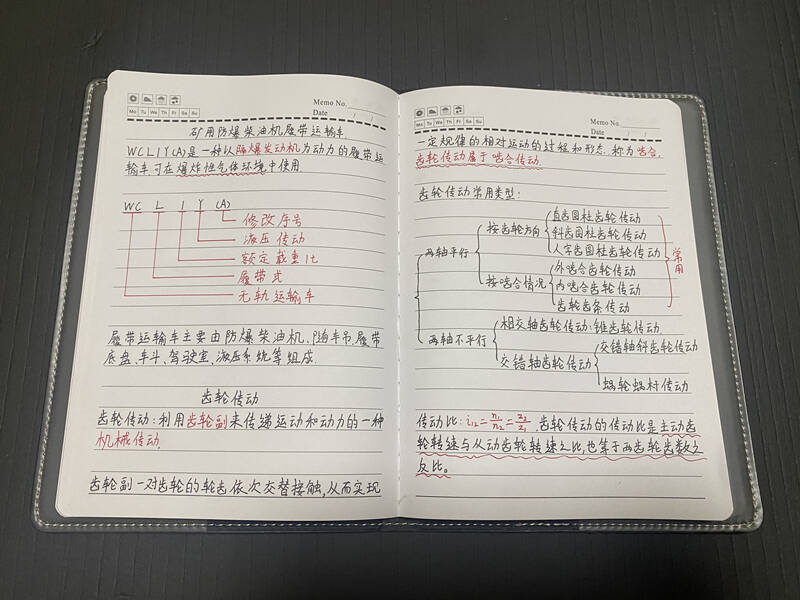 Memo No.
Mo Tu We Th Fr Sa Su
Date / /
矿用防爆柴油机履带运输车
WCL1Y(A)是一种以防爆发动机为动力的履带运
输车可在爆炸性气体环境中使用.
WC L 1 Y (A)
修改序号
液压传动
额定载重1t
履带式
无轨运输车
履带运输车主要由防爆柴油机、随车吊、履带
底盘、车斗、驾驶室、液压系统等组成.
齿轮传动
齿轮传动:利用齿轮副来传递运动和动力的一种
机械传动.
齿轮副一对齿轮的轮齿依次交替接触,从而实现
Memo No.
Mo Tu We Th Fr Sa Su
Date / /
一定规律的相对运动的过程和形态.称为啮合.
齿轮传动属于啮合传动.
齿轮传动常用类型:
两轴平行
按齿轮方向
直齿圆柱齿轮传动
斜齿圆柱齿轮传动
人字齿圆柱齿轮传动
按啮合情况
外啮合齿轮传动
内啮合齿轮传动
齿轮齿条传动
常用
两轴不平行
相交轴齿轮传动:锥齿轮传动.
交错轴齿轮传动
交错轴斜齿轮传动
蜗轮蜗杆传动
传动比:i₁₂=n₁/n₂=z₂/z₁.齿轮传动的传动比是主动齿
轮转速与从动齿轮转速之比,也等于两齿轮齿数之
反比。